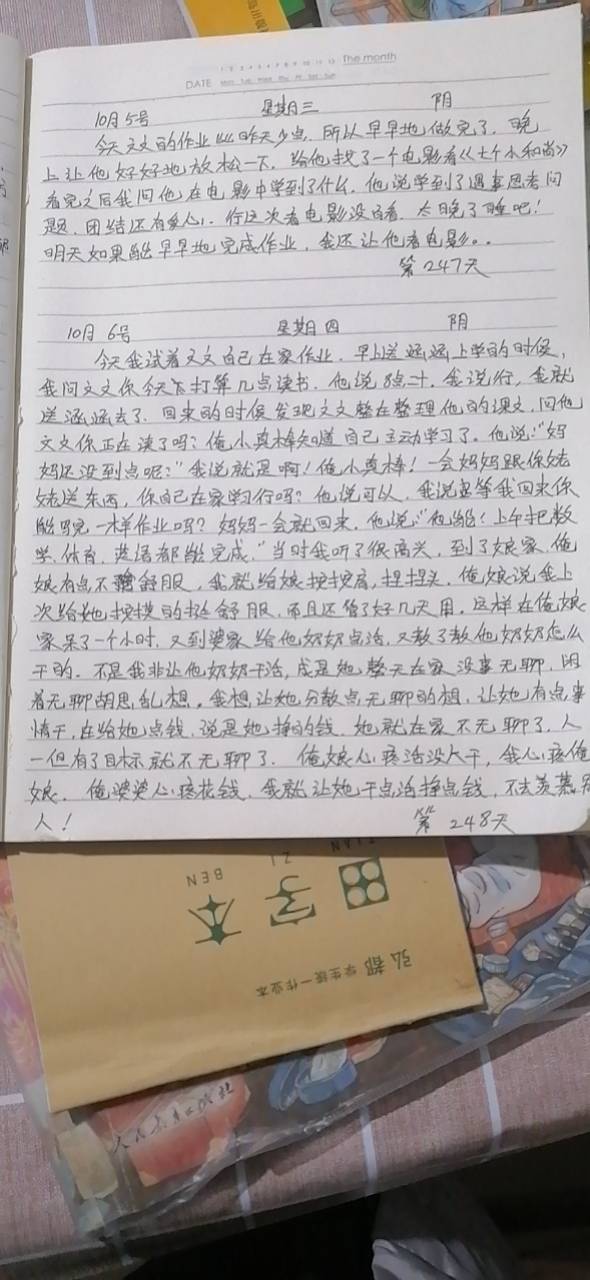 The month
DATE
10月5号 星期三 阴
今天文文的作业比昨天少点，所以早早地做完了，晚
上让他好好地放松一下，给他找了一个电影看《七个小和尚》
看完之后我问他在电影中学到了什么，他说学到了遇事思考问
题，团结还有爱心，行这次看电影没白看，太晚了睡吧！
明天如果能早早地完成作业，我还让他看电影。
第247天
10月6号 星期四 阴
今天我试着文文自己在家作业，早上送涵涵上学的时候，
我问文文你今天打算几点读书，他说8点二十，我说行，我就
送涵涵去了，回来的时候发现文文整在整理他的课文，问他
文文你正在读了吗？俺小真棒知道自己主动学习了，他说："妈
妈还没到点呢："我说就是啊！俺小真棒！一会妈妈跟你姥
姥送东西，你自己在家学习行吗？他说可以，我说等我回来你
能写完一样作业吗？妈妈一会就回来，他说："能！上午把数
学、体育、英语都能完成，"当时我听了很高兴，到了娘家，俺
娘有点不舒服，我就给娘按按肩，捏捏头，俺娘说我上
次给她按摸的挺舒服，而且还管了好几天用，这样在俺娘
家呆了一个小时，又到婆家给他奶奶点活，又教了教他奶奶怎么
干的，不是我非让他奶奶干活，成是她整天在家没事无聊，闲
着无聊胡思乱想，我想让她分散点无聊的想，让她有点事
情干，在给她点钱，说是她挣的钱，她就在家不无聊了，人
一但有了目标就不无聊了， 俺娘心疼活没人干，我心疼俺
娘， 俺婆婆心疼花钱，我就让她干点活挣点钱，不去羡慕别
人！ 第248天
BEN ZI TIAN
田字本
弘都 学生统一作业本
人民教育出版社